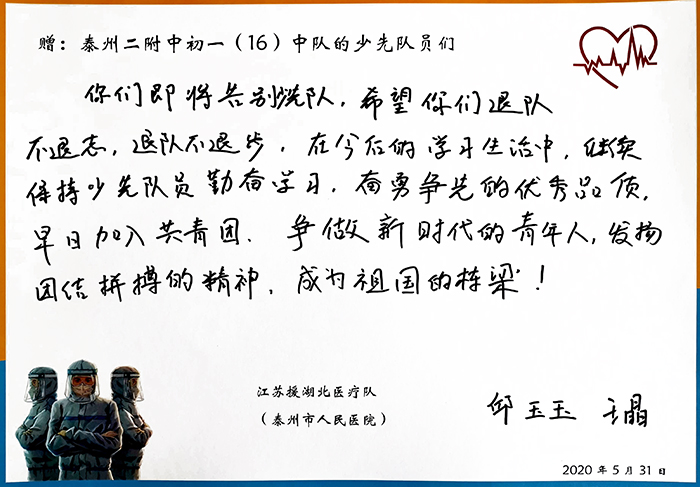 赠：泰州二附中初一（16）中队的少先队员们
你们即将告别洗队，希望你们退队
不退志，退队不退步，在今后的学习生活中，继续
保持少先队员勤奋学习，奋勇争先的优秀品质，
早日加入共青团．争做新时代的青年人，发扬
团结拼搏的精神，成为祖国的栋梁！
江苏援湖北医疗队
（泰州市人民医院）
邱玉玉 王晶
2020 年 5 月 31 日